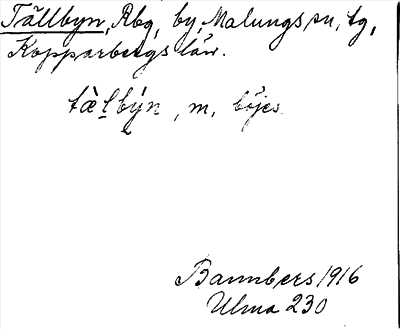 Tällbyn, Rbg, by, Malungs sn, tg,
Kopparbergs län.
tæ̀lbýn, m, böjes.
Bannbers 1916
Ulma 230